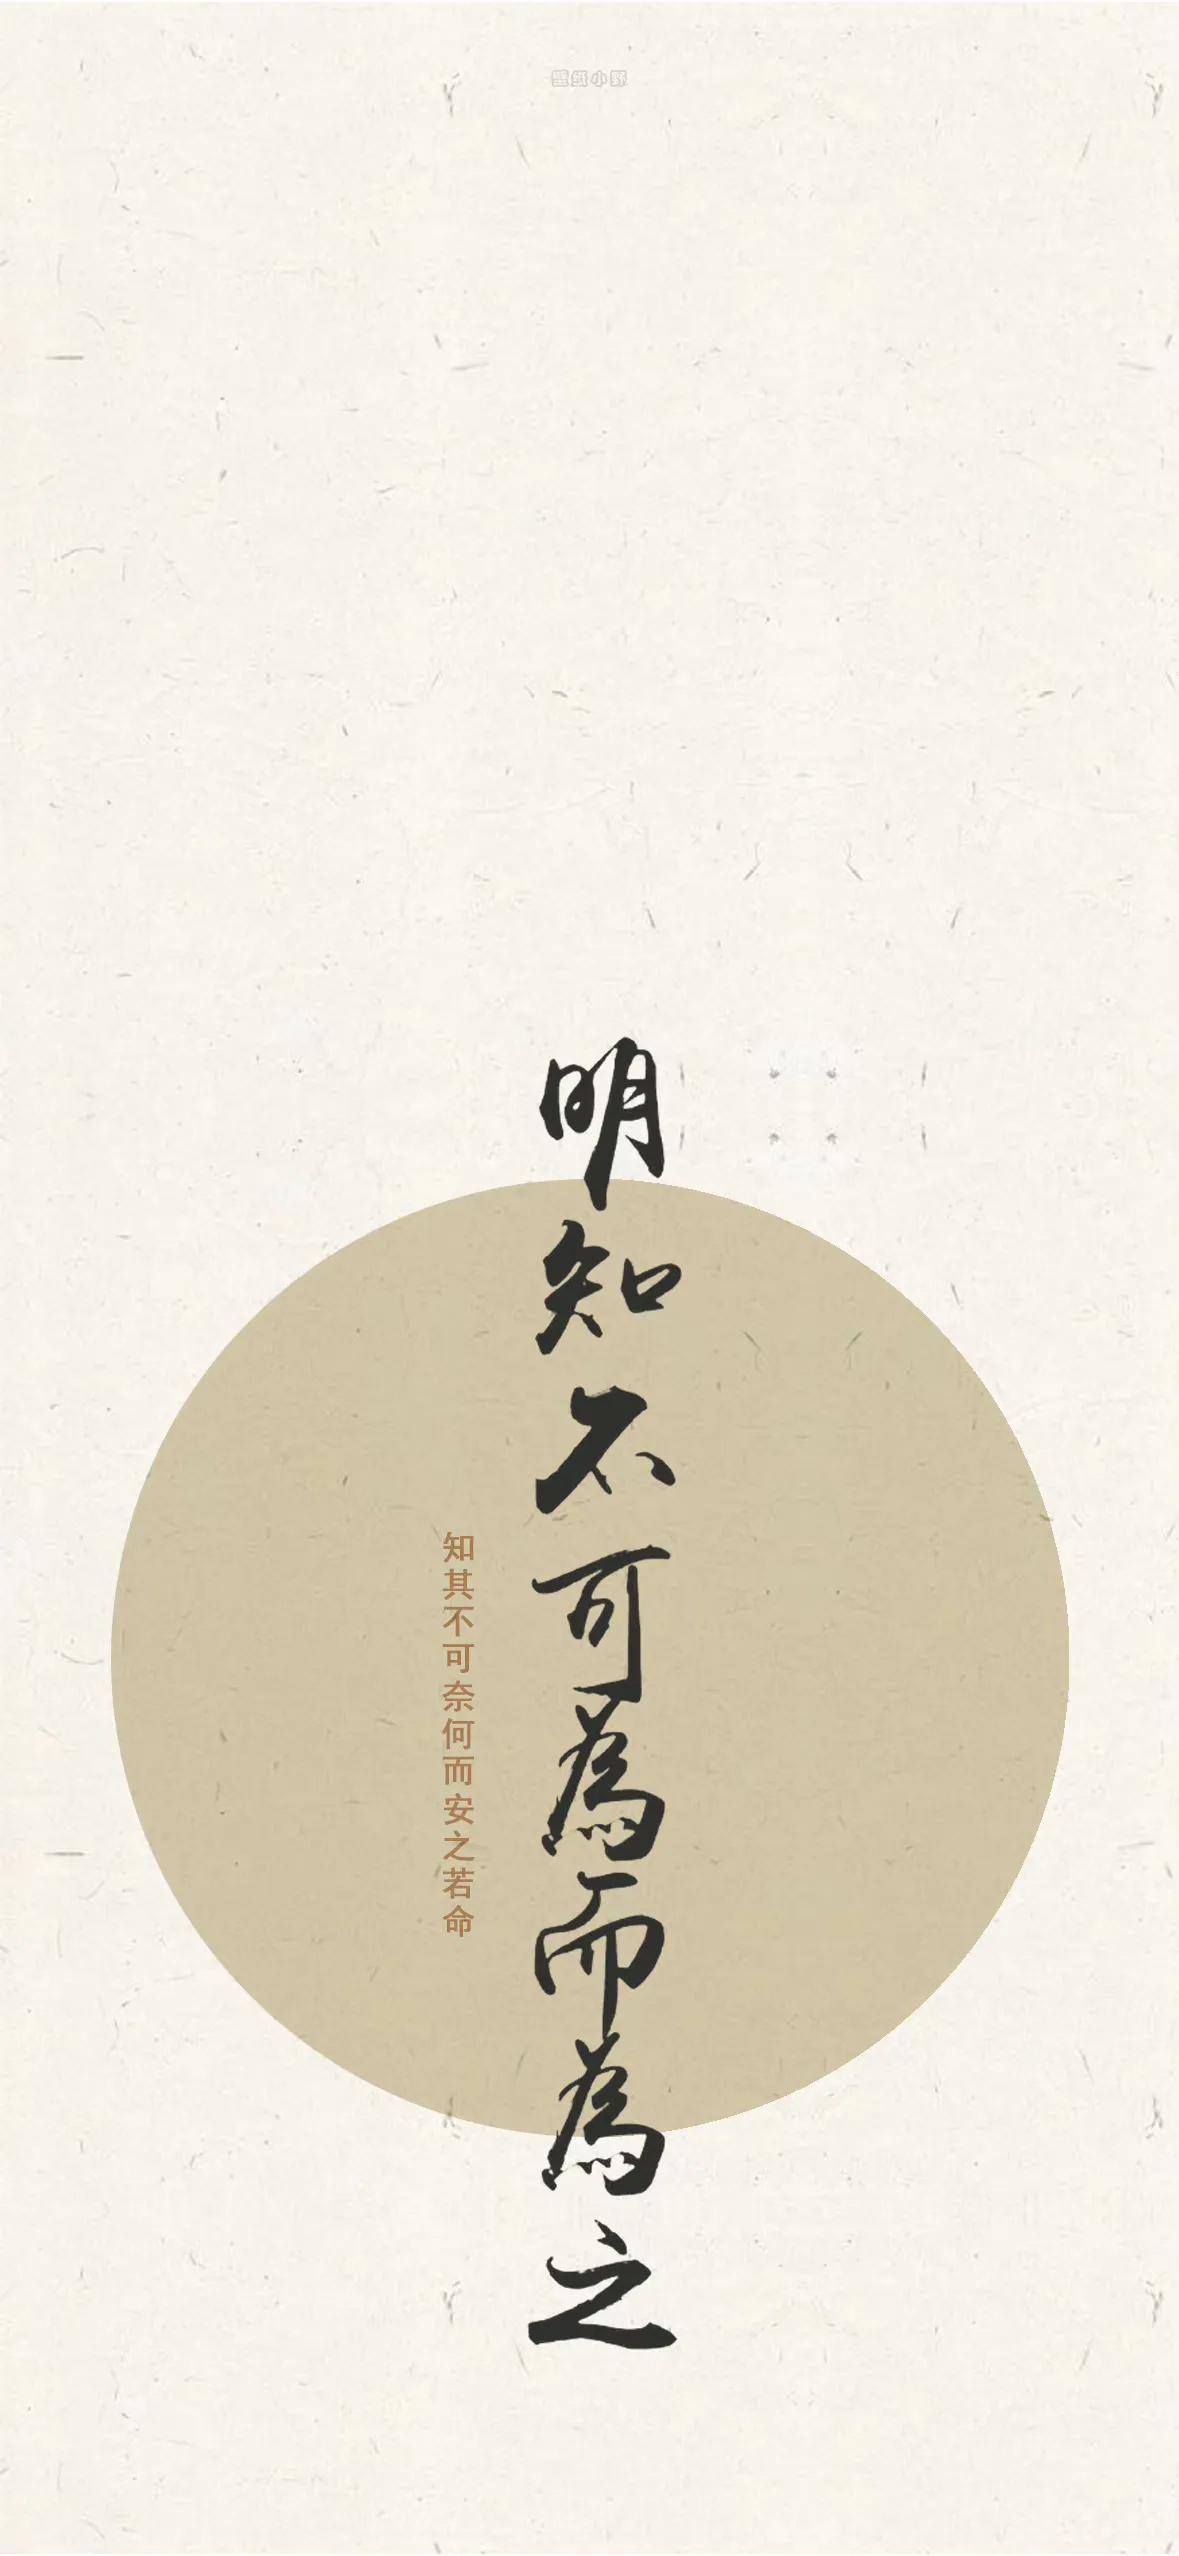 壁纸小野
明知不可為而為之
知其不可奈何而安之若命